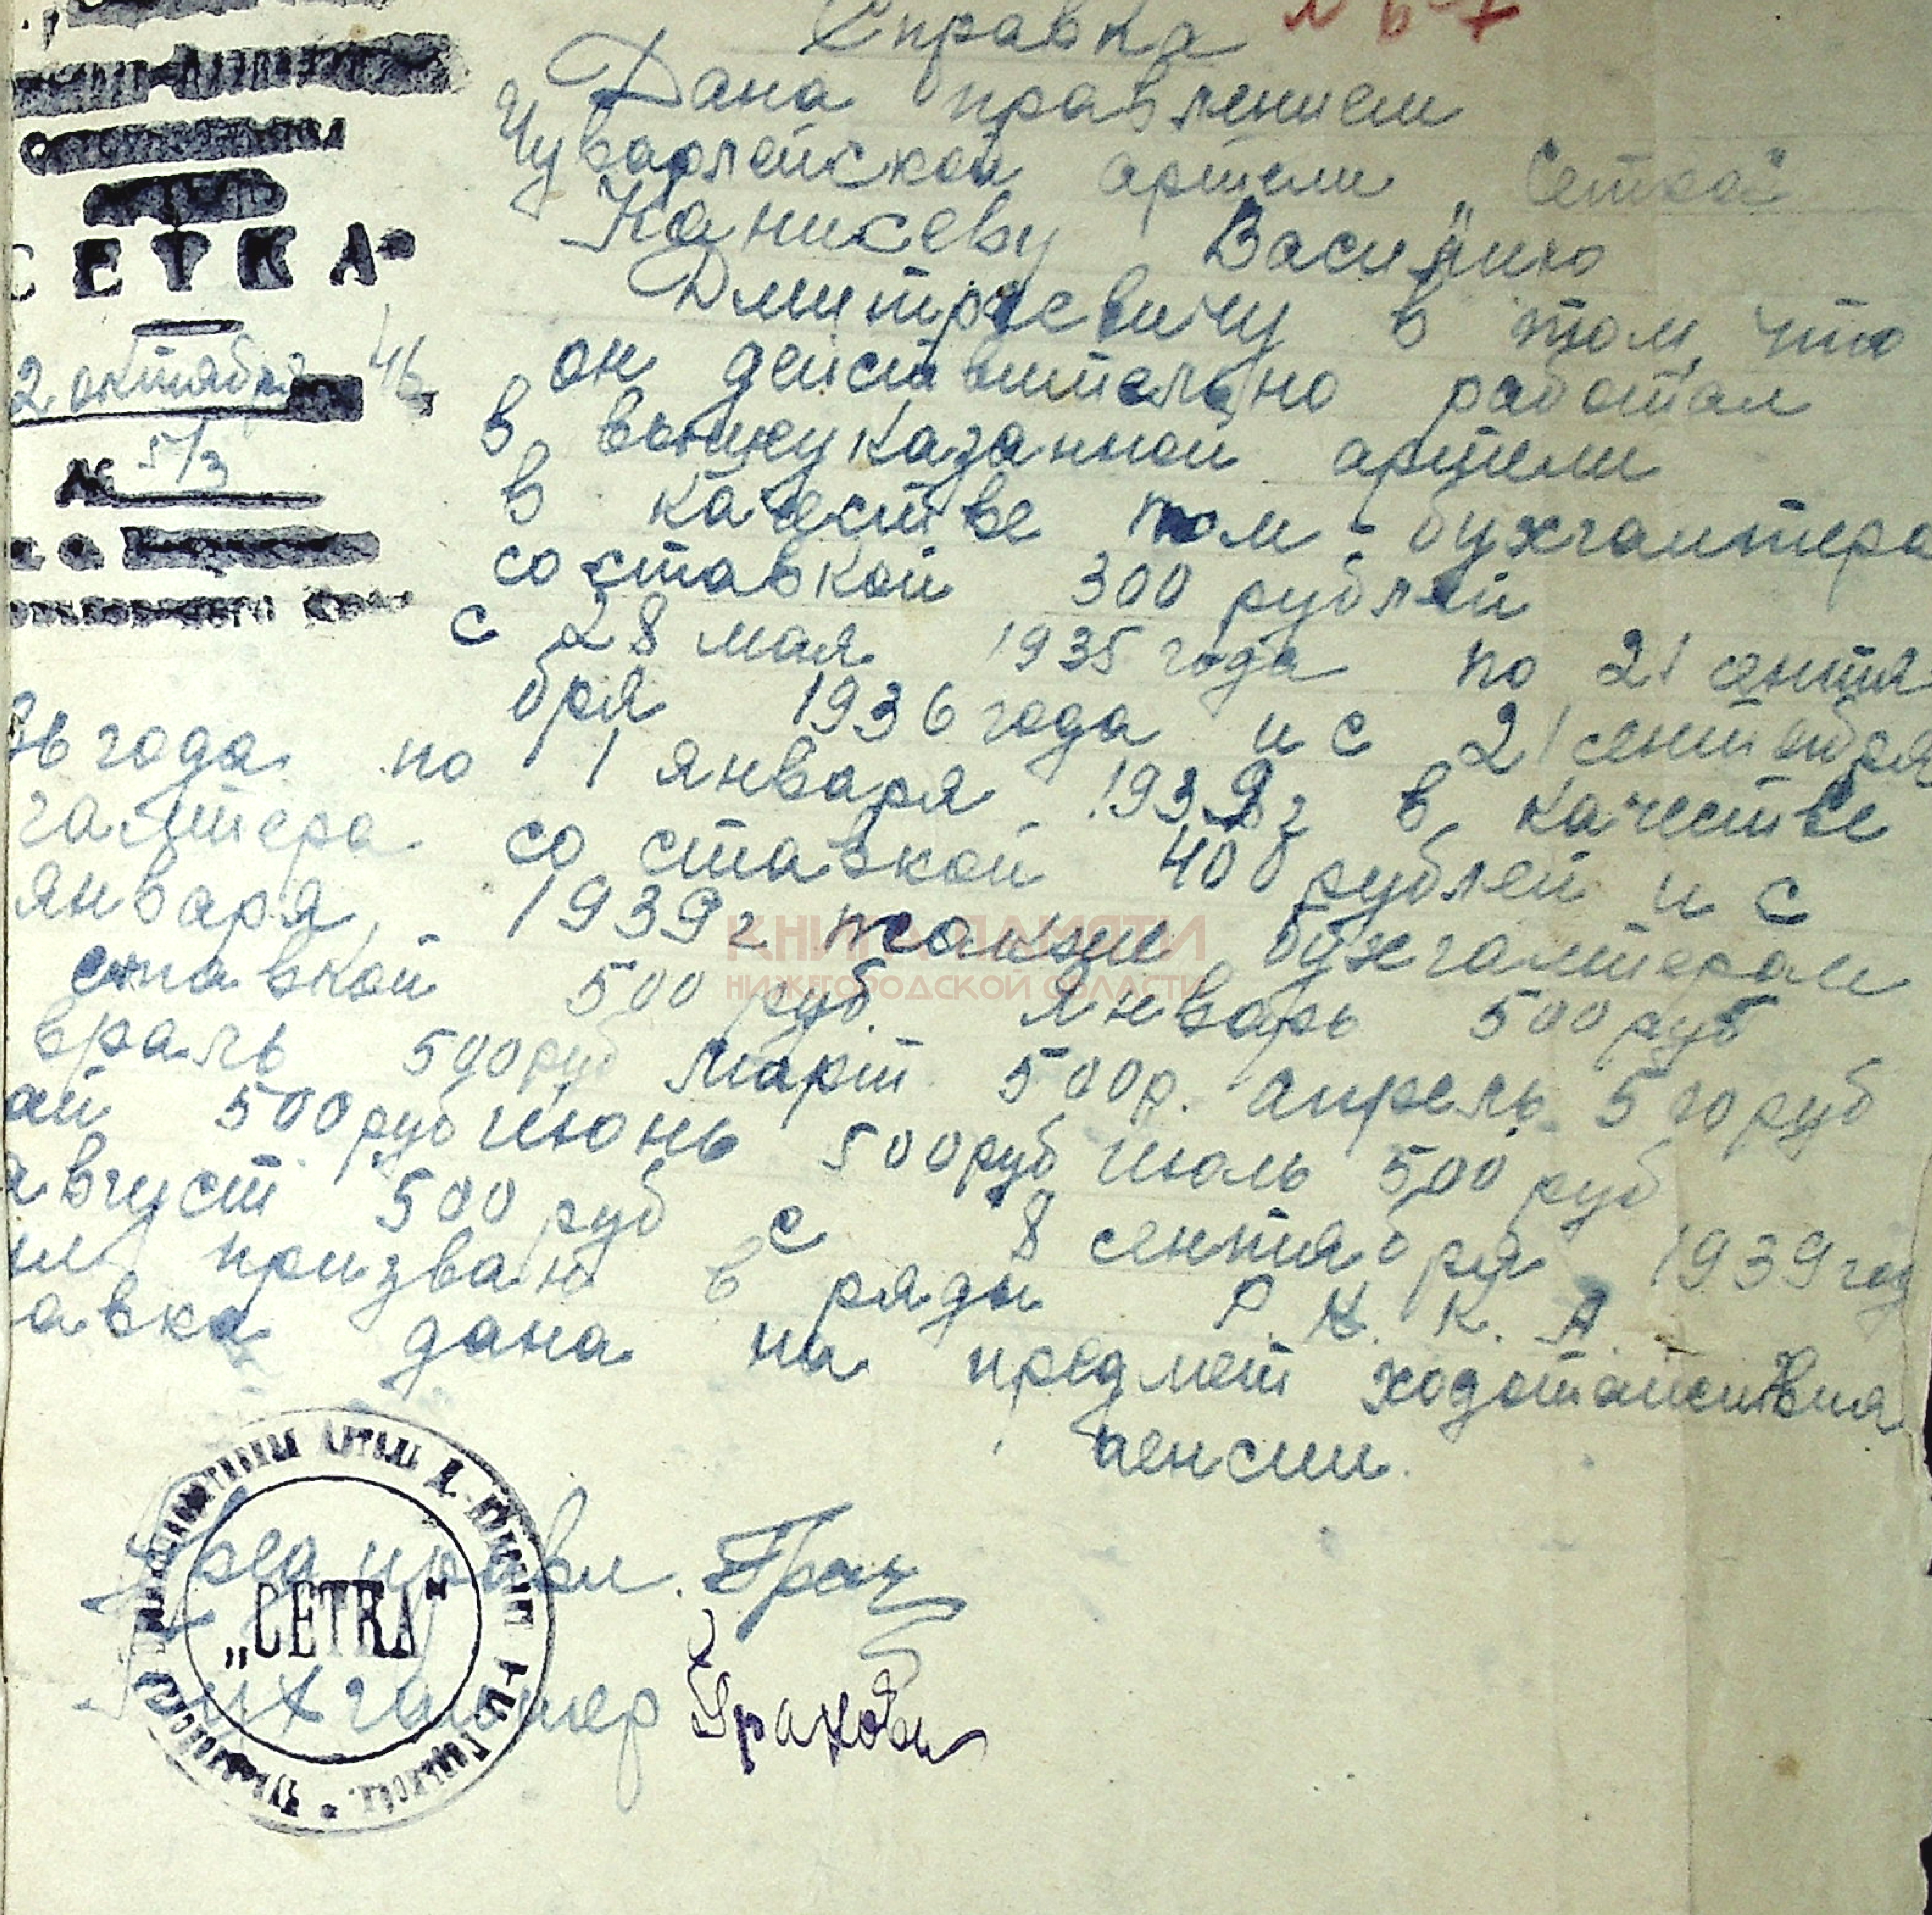 Справка
Дана правлением
Чуварлейской артели „Сетка“
Каникеву Василию
Дмитриевичу в том, что
он действительно работал
в вышеуказанной артели
в качестве пом. бухгалтера
со ставкой 300 рублей
с 28 мая 1935 года по 21 сентя
бря 1936 года и с 21 сентября
36 года по 1 января 1939 г в качестве
галтера со ставкой 400 рублей и с
января 1939 г также бухгалтером
ставкой 500 руб. Январь 500 руб
враль 500 руб март 500 р. апрель 500 руб
ай 500 руб июнь 500 руб июль 500 руб
август 500 руб с 8 сентября 1939 год
призван в ряды Р. К. К. А.
авка дана на предмет ходотайствия
пенсии.
СЕТКА“
2 октября 46
№ 5/3
Пред правл.
Бухгалтер
„СЕТКА“
КНИГА ПАМЯТИ
НИЖЕГОРОДСКОЙ ОБЛАСТИ